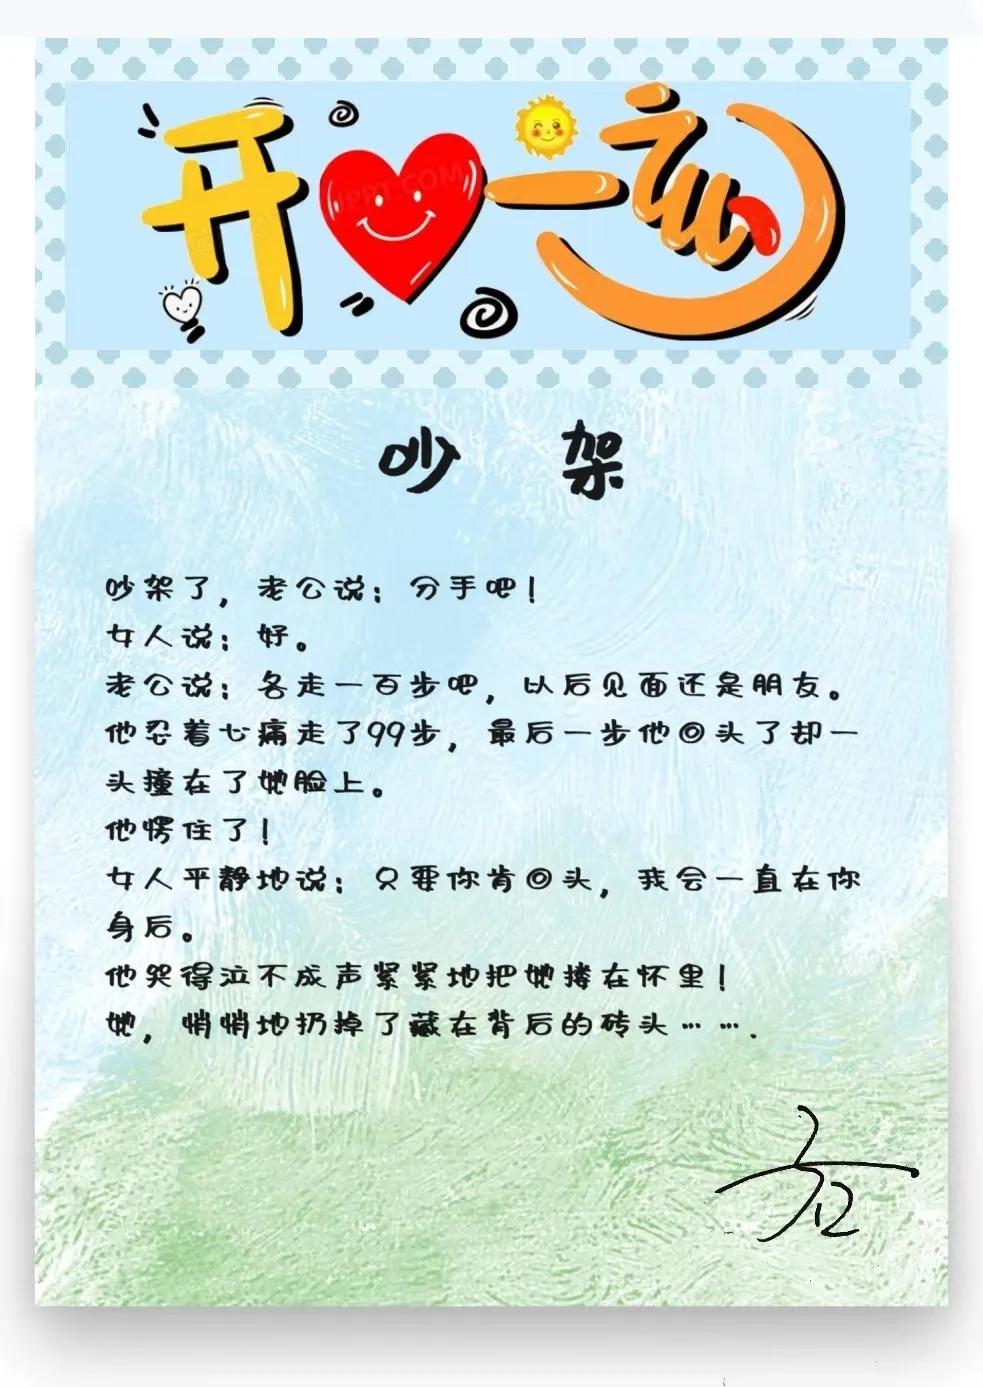 开心一刻
吵 架
吵架了，老公说：分手吧！
女人说：好。
老公说：各走一百步吧，以后见面还是朋友。
他忍着心痛走了99步，最后一步他回头了却一
头撞在了她脸上。
他愕住了！
女人平静地说：只要你肯回头，我会一直在你
身后。
他哭得泣不成声紧紧地把她搂在怀里！
她，悄悄地扔掉了藏在背后的砖头… ….